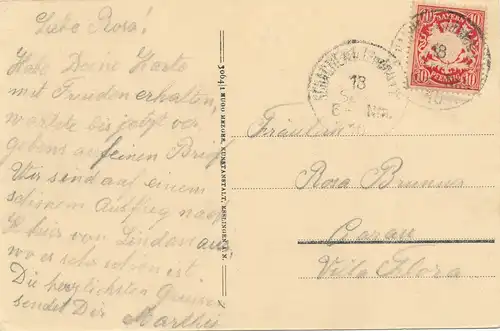 Liebe Rosa!
Habe Deine Karte
mit Freuden erhalten,
wartete bis jetzt ver
gebens auf einen Brief
Wir sind auf einem
schönen Ausflug nach
hier von Lindau aus
wo es sehr schön ist
Die herzlichsten Grüsse
sendet Dir Marthe
HUGO MEZGER, KUNSTANSTALT, ESSLINGEN A. N.
18
BAYERN
10 PFENNIG 10
18
Fräulein
Rosa Brunner
Villa Flora